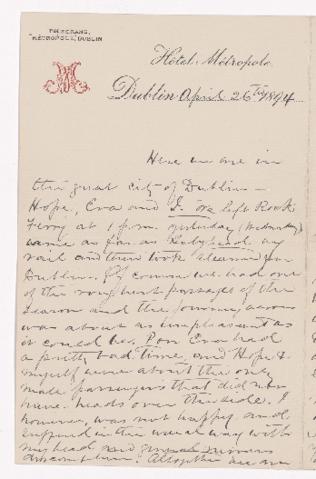 TELEGRAMS,
"METROPOLE, DUBLIN"
M
Hotel Métropole
Dublin April 26th 1894
Here we are in
this great city of Dublin —
Hope, Eva and I. We left Rock
Ferry at 1 p.m. yesterday (Wednesday)
came as far as Holyhead by
rail and then took steamer for
Dublin. Of course we had one
of the roughest passages of the
season and the journey across
was about as unpleasant as
it could be. Poor Eva had
a pretty bad time, and Hope &
myself were about the only
male passengers that did not
have heads over the side. I
however, was not happy and
suffered in the usual way with
my head and general
discomfort. Altogether we are